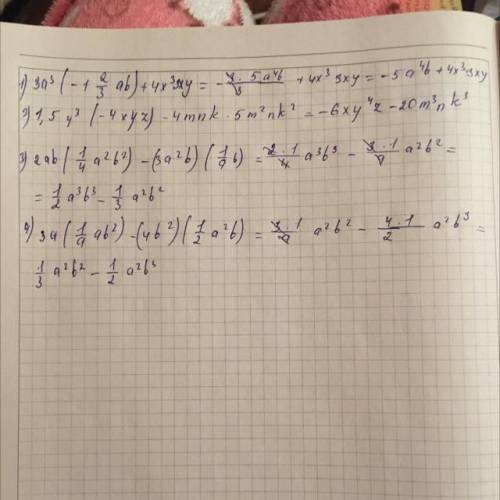 1) 3a³ (-1 2/3 ab) + 4x³ 3xy = - 3 · 5a⁴b / 3 + 4x³ 3xy = -5a⁴b + 4x³ 3xy
2) 1,5 y³ (-4xyz) - 4mnk · 5m²nk² = -6xy⁴z - 20m³nk³
3) 2ab (1/4 a²b²) - (3a²b) (1/9 b) = 2·1/4 a³b³ - 3·1/9 a²b² =
= 1/2 a³b³ - 1/3 a²b²
4) 3a (1/9 ab²) - (4b²) (1/2 a²b) = 3·1/9 a²b² - 4·1/2 a²b³ =
1/3 a²b² - 1/2 a²b³